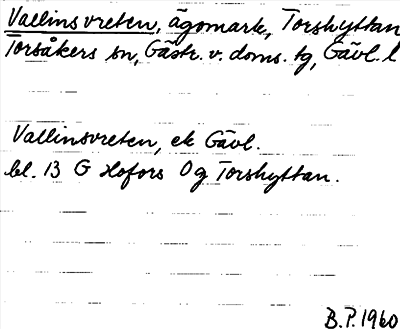 Vallinsvreten, ägomark, Torshyttan
Torsåkers sn, Gästr. v. doms. tg, Gävl. l
Vallinsvreten, ek Gävl.
bl. 13 G Hofors Og Torshyttan.
B.P. 1960